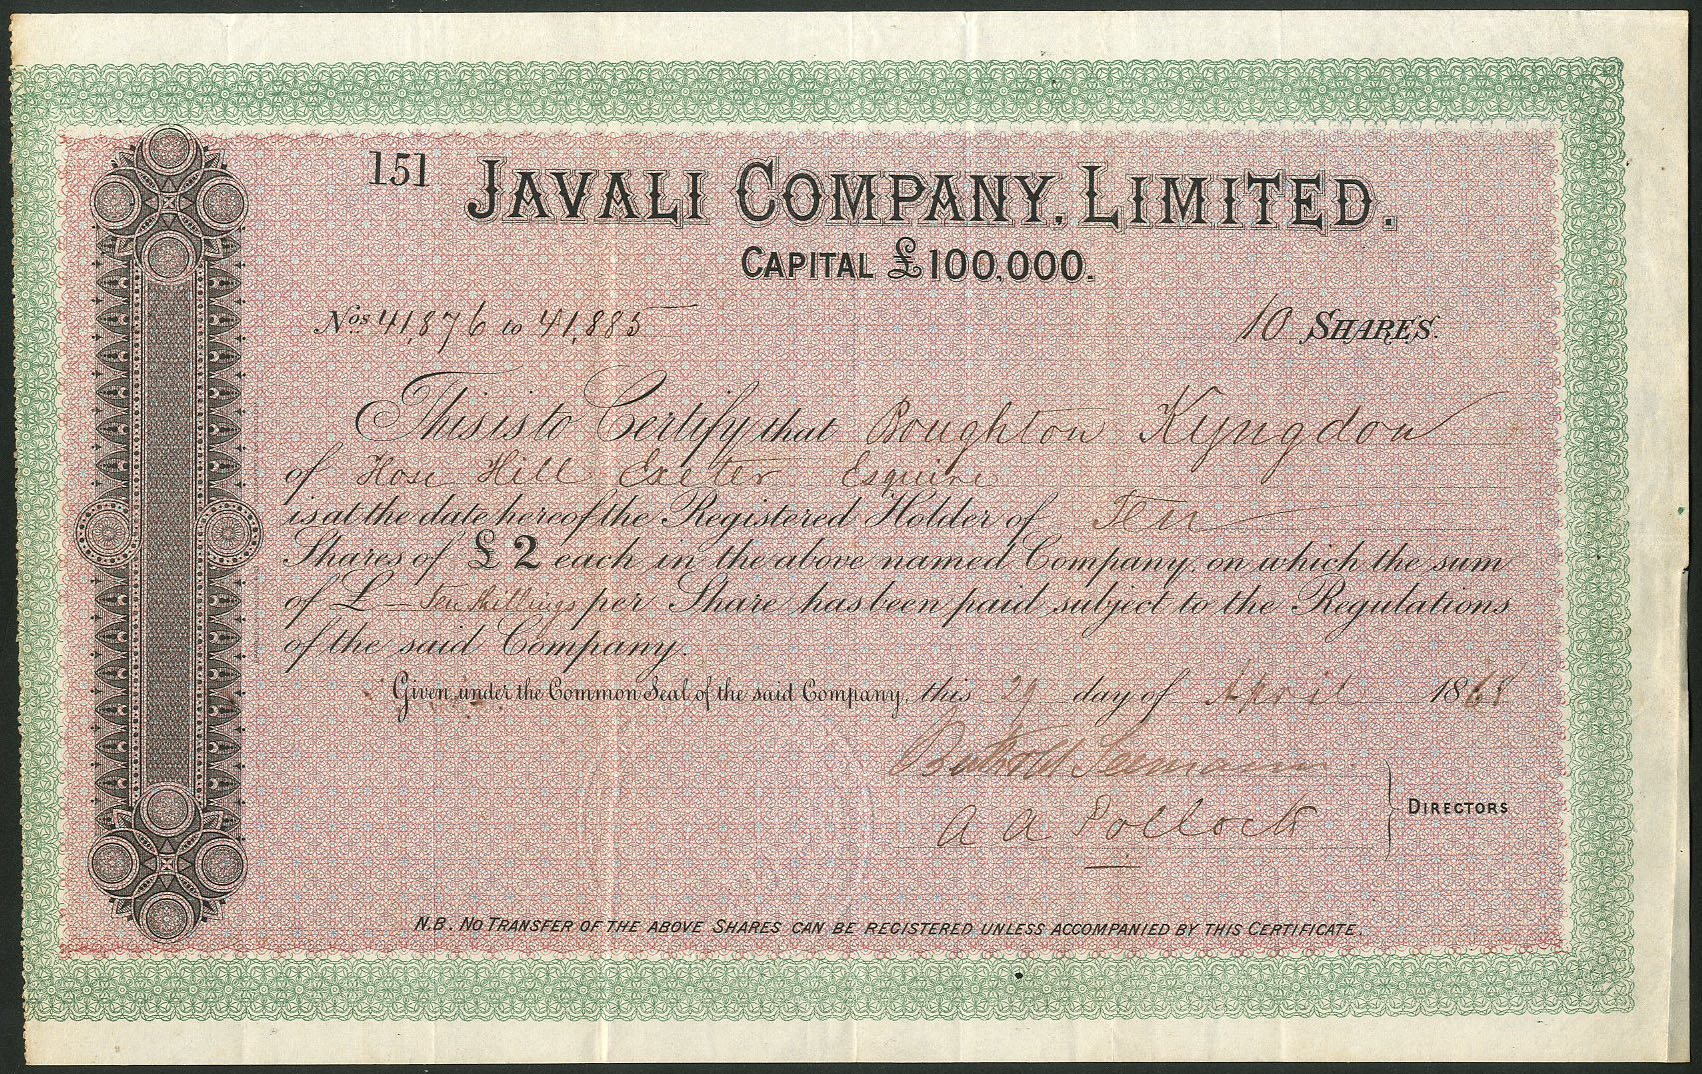 151 JAVALI COMPANY, LIMITED.
CAPITAL £100,000.
Nos 41,876 to 41,885 10 SHARES.
This is to Certify that Boughton Kyngdon
of Hose Hill Exeter Esquire
is at the date hereof the Registered Holder of Ten
Shares of £2 each in the above named Company, on which the sum
of £ Ten Shillings per Share has been paid subject to the Regulations
of the said Company.
Given under the Common Seal of the said Company, this 29 day of April 1868
Berthold Seemann
A A Pollock
DIRECTORS
N.B. NO TRANSFER OF THE ABOVE SHARES CAN BE REGISTERED UNLESS ACCOMPANIED BY THIS CERTIFICATE.